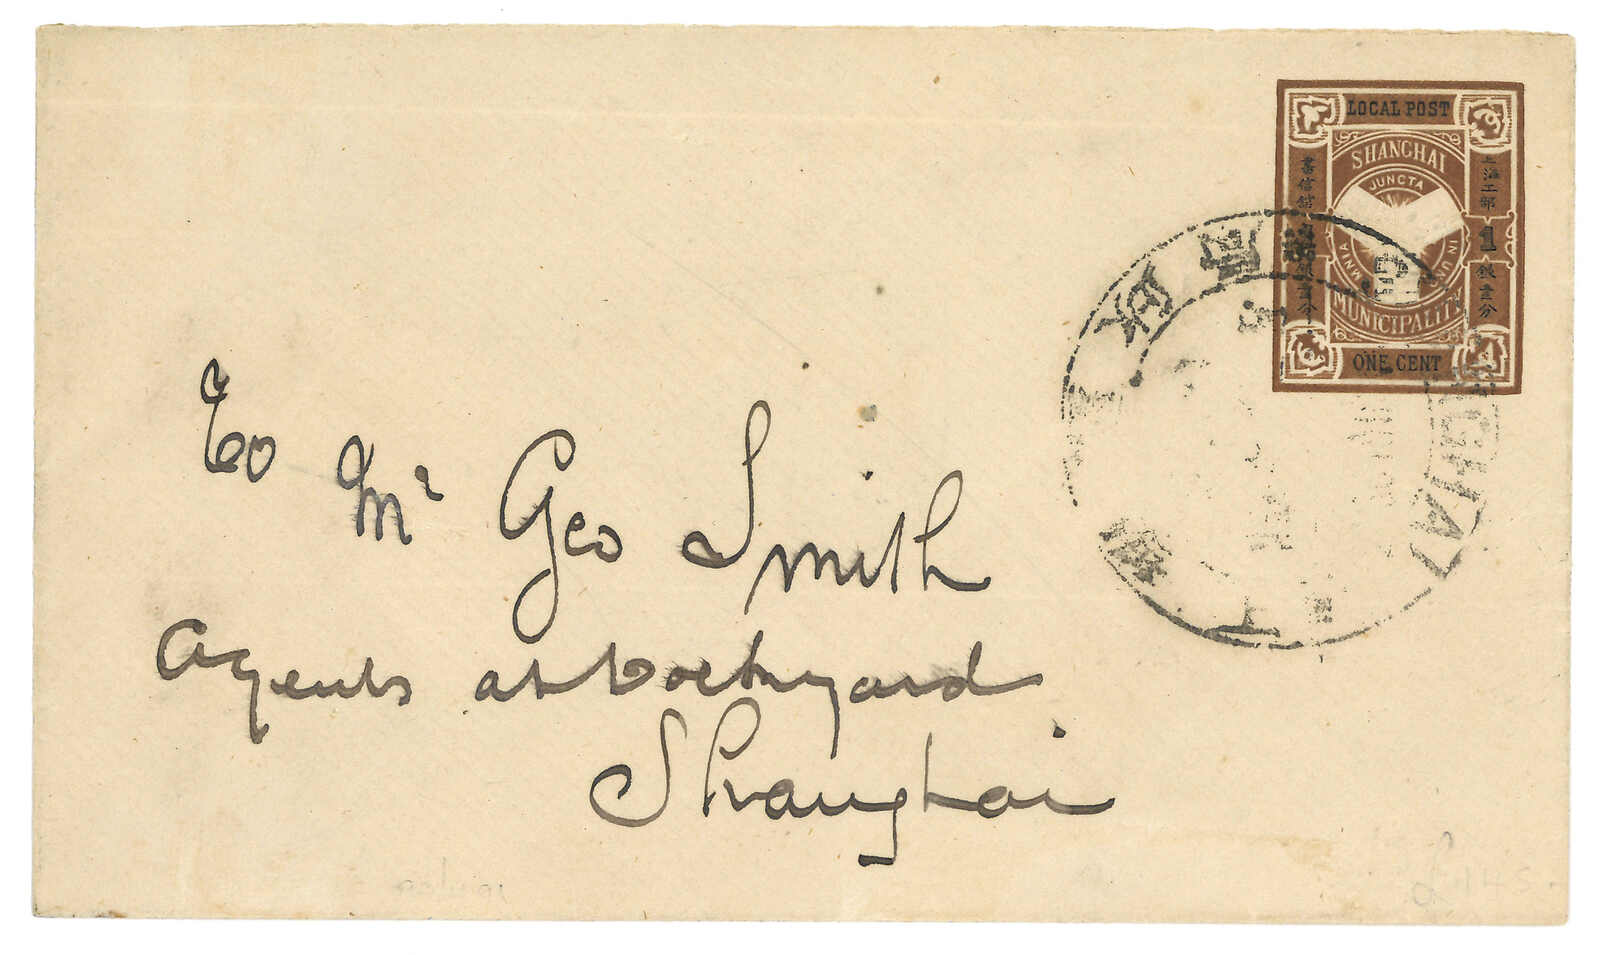 LOCAL POST
SHANGHAI
JUNCTA
IN UNO
OMNIA
MUNICIPALITY
上海工部
1
銀壹分
書信館
銀壹分
ONE CENT
To Mr Geo Smith
Agents at Dockyard
Shanghai